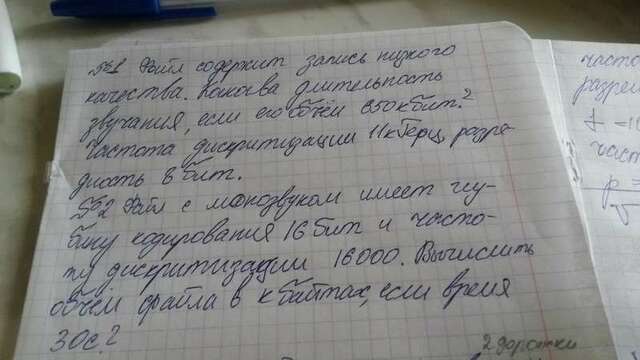 №1 Файл содержит запись низкого
качества. Какова длительность
звучания, если его объём 650 кбит?
Частота дискритизации 11 кГерц, разря-
дность 8 бит.
№2 Файл с монозвуком имеет глу-
бину кодирования 16 бит и часто-
ту дискритизации 16000. Вычислить
объём файла в кбайтах, если время
30с.?
2 дорожки
часто
разре
част